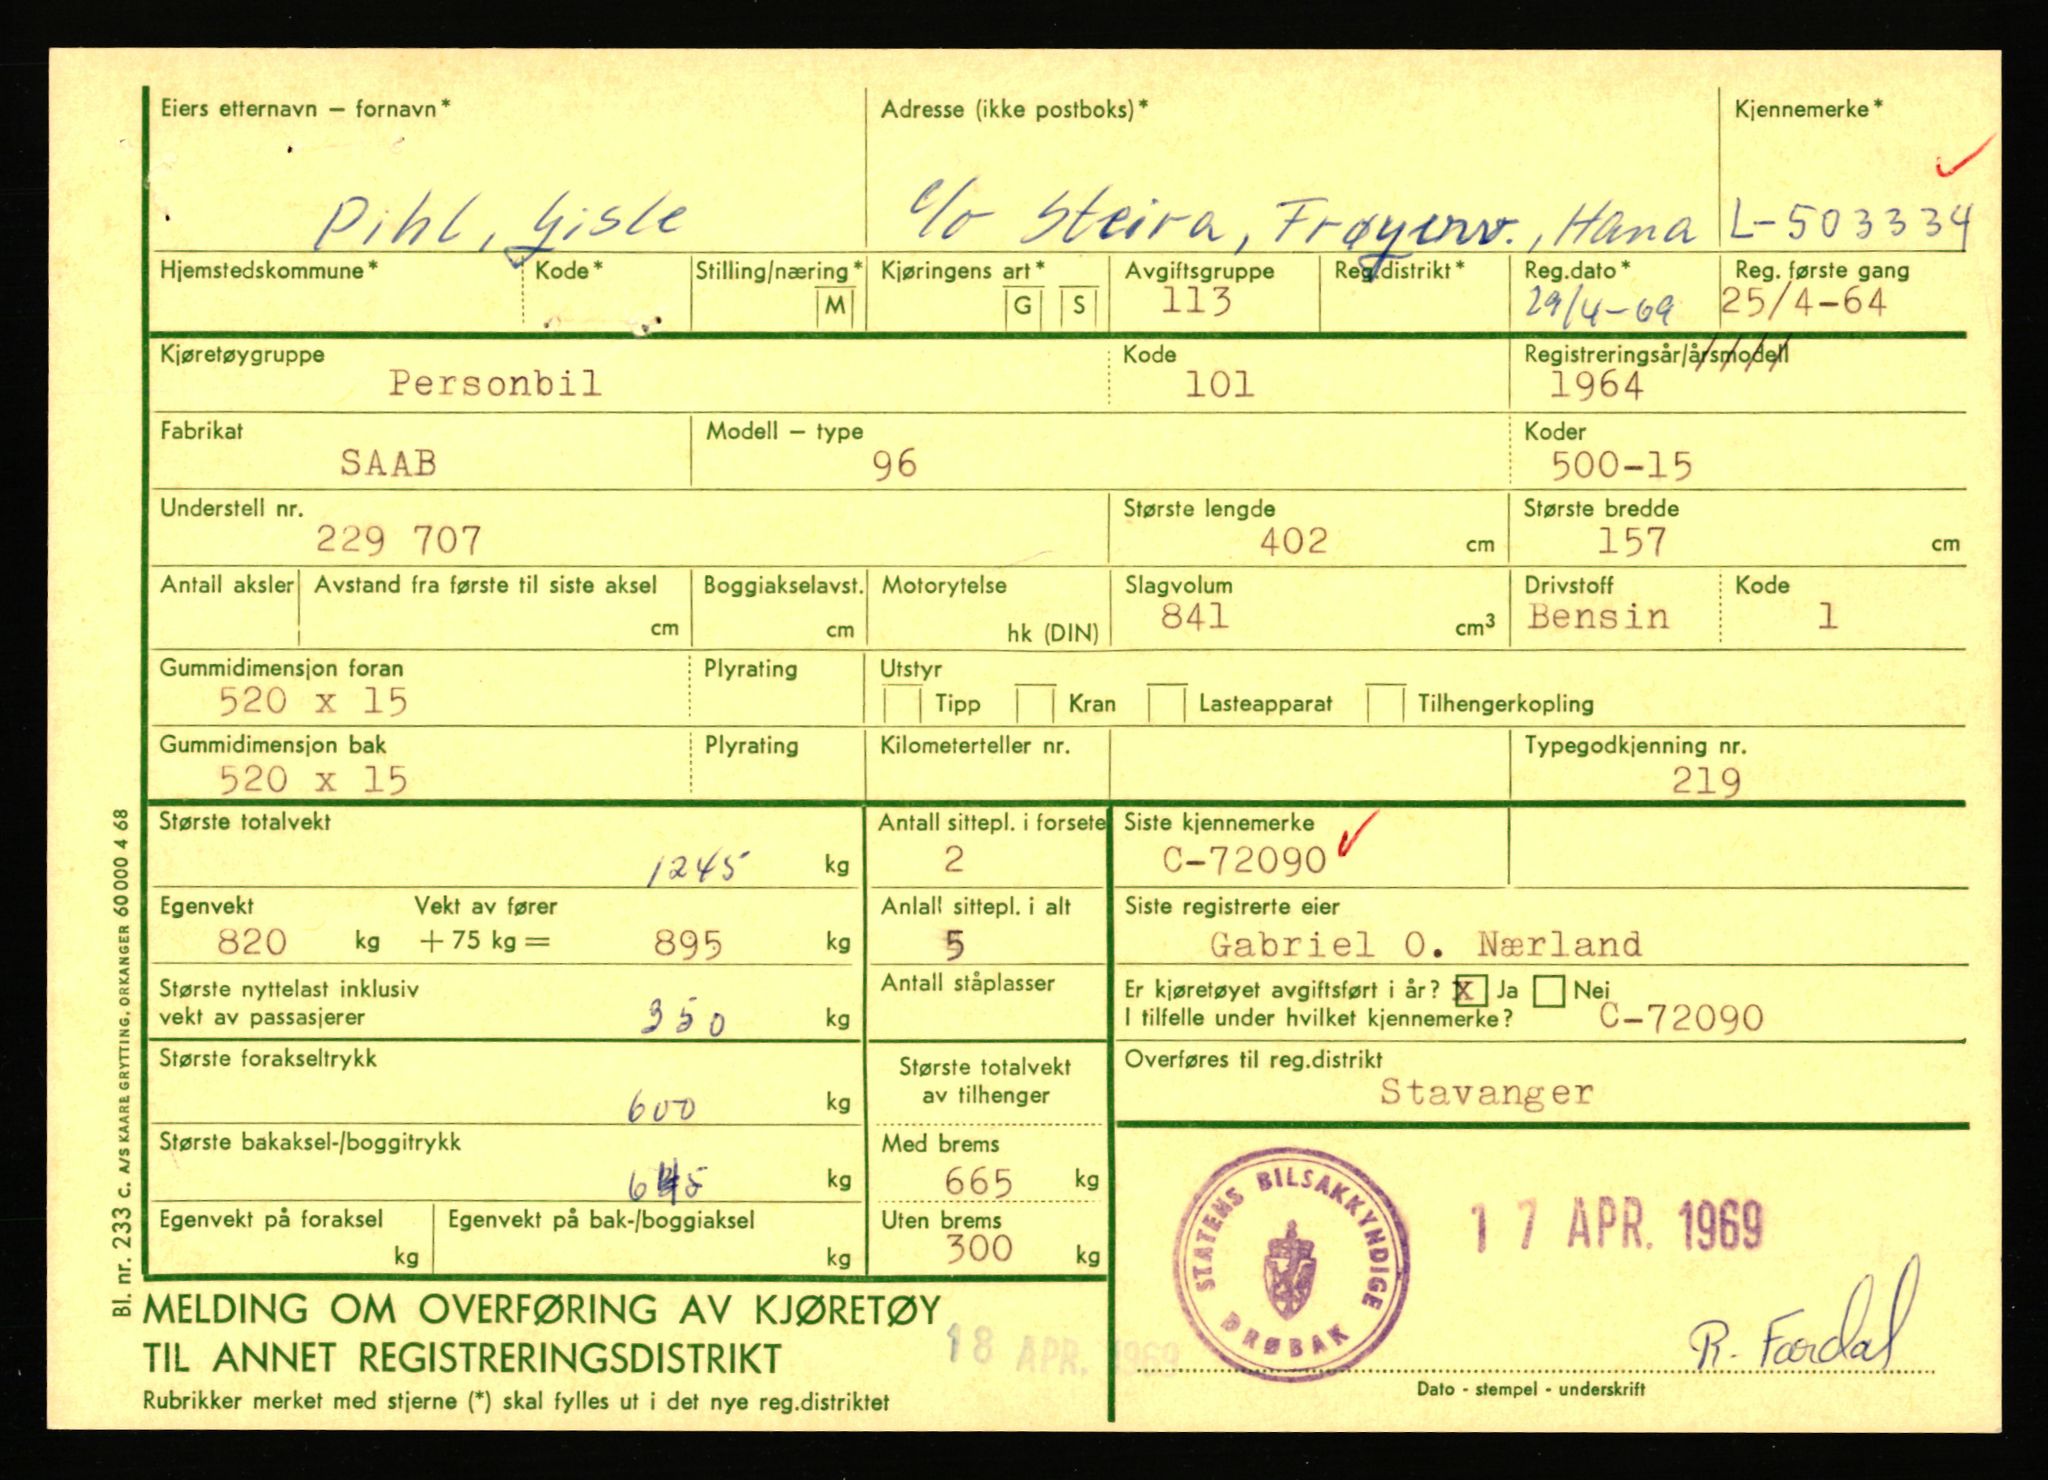 Eiers etternavn — fornavn* Adresse (ikke postboks)* Kjennemerke*
Pihl, Gisle c/o Steira, Frøyerv., Hana L-503334
Hjemstedskommune* Kode* Stilling/næring* Kjøringens art* Avgiftsgruppe Reg.distrikt* Reg.dato* Reg. første gang
M G S 113 29/4-69 25/4-64
Kjøretøygruppe Kode Registreringsår/årsmodell
Personbil 101 1964
Fabrikat Modell — type Koder
SAAB 96 500-15
Understell nr. Største lengde Største bredde
229 707 402 cm 157 cm
Antall aksler Avstand fra første til siste aksel Boggiakselavst. Motorytelse Slagvolum Drivstoff Kode
cm cm hk (DIN) 841 cm³ Bensin 1
Gummidimensjon foran Plyrating Utstyr
520 x 15 Tipp Kran Lasteapparat Tilhengerkopling
Gummidimensjon bak Plyrating Kilometerteller nr. Typegodkjenning nr.
520 x 15 219
Største totalvekt Antall sittepl. i forsete Siste kjennemerke
1245 kg 2 C-72090
Egenvekt Vekt av fører Anlall sittepl. i alt Siste registrerte eier
820 kg + 75 kg = 895 kg 5 Gabriel O. Nærland
Største nyttelast inklusiv Antall ståplasser Er kjøretøyet avgiftsført i år? X Ja Nei
vekt av passasjerer 350 kg I tilfelle under hvilket kjennemerke? C-72090
Største forakseltrykk Største totalvekt Overføres til reg.distrikt
600 kg av tilhenger Stavanger
Største bakaksel-/boggitrykk Med brems
645 kg 665 kg
Egenvekt på foraksel Egenvekt på bak-/boggiaksel Uten brems
kg kg 300 kg
STATENS BILSAKKYNDIGE DRØBAK
17 APR. 1969
MELDING OM OVERFØRING AV KJØRETØY
TIL ANNET REGISTRERINGSDISTRIKT
18 APR. 1969
R. Fardal
Dato - stempel - underskrift
Rubrikker merket med stjerne (*) skal fylles ut i det nye reg.distriktet
Bl. nr. 233 C. A/S KAARE GRYTTING, ORKANGER 60 000 4 68